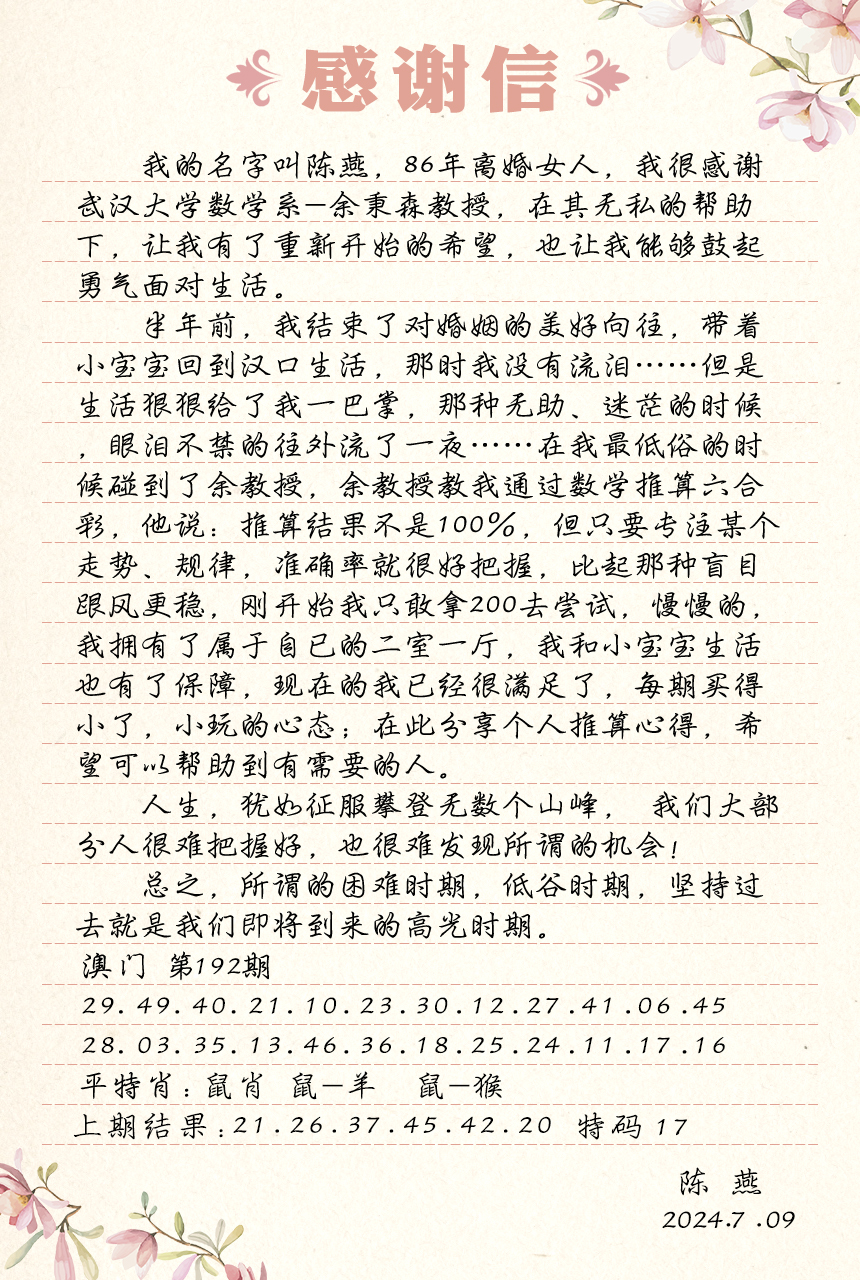 感谢信
我的名字叫陈燕，86年离婚女人，我很感谢
武汉大学数学系—余秉森教授，在其无私的帮助
下，让我有了重新开始的希望，也让我能够鼓起
勇气面对生活。
半年前，我结束了对婚姻的美好向往，带着
小宝宝回到汉口生活，那时我没有流泪……但是
生活狠狠给了我一巴掌，那种无助、迷茫的时候
，眼泪不禁的往外流了一夜……在我最低俗的时
候碰到了余教授，余教授教我通过数学推算六合
彩，他说：推算结果不是100%，但只要专注某个
走势、规律，准确率就很好把握，比起那种盲目
跟风更稳，刚开始我只敢拿200去尝试，慢慢的，
我拥有了属于自己的二室一厅，我和小宝宝生活
也有了保障，现在的我已经很满足了，每期买得
小了，小玩的心态；在此分享个人推算心得，希
望可以帮助到有需要的人。
人生，犹如征服攀登无数个山峰， 我们大部
分人很难把握好，也很难发现所谓的机会！
总之，所谓的困难时期，低谷时期，坚持过
去就是我们即将到来的高光时期。
澳门 第192期
29.49.40.21.10.23.30.12.27.41.06.45
28.03.35.13.46.36.18.25.24.11.17.16
平特肖：鼠肖 鼠—羊 鼠—猴
上期结果：21.26.37.45.42.20 特码17
陈 燕
2024.7.09